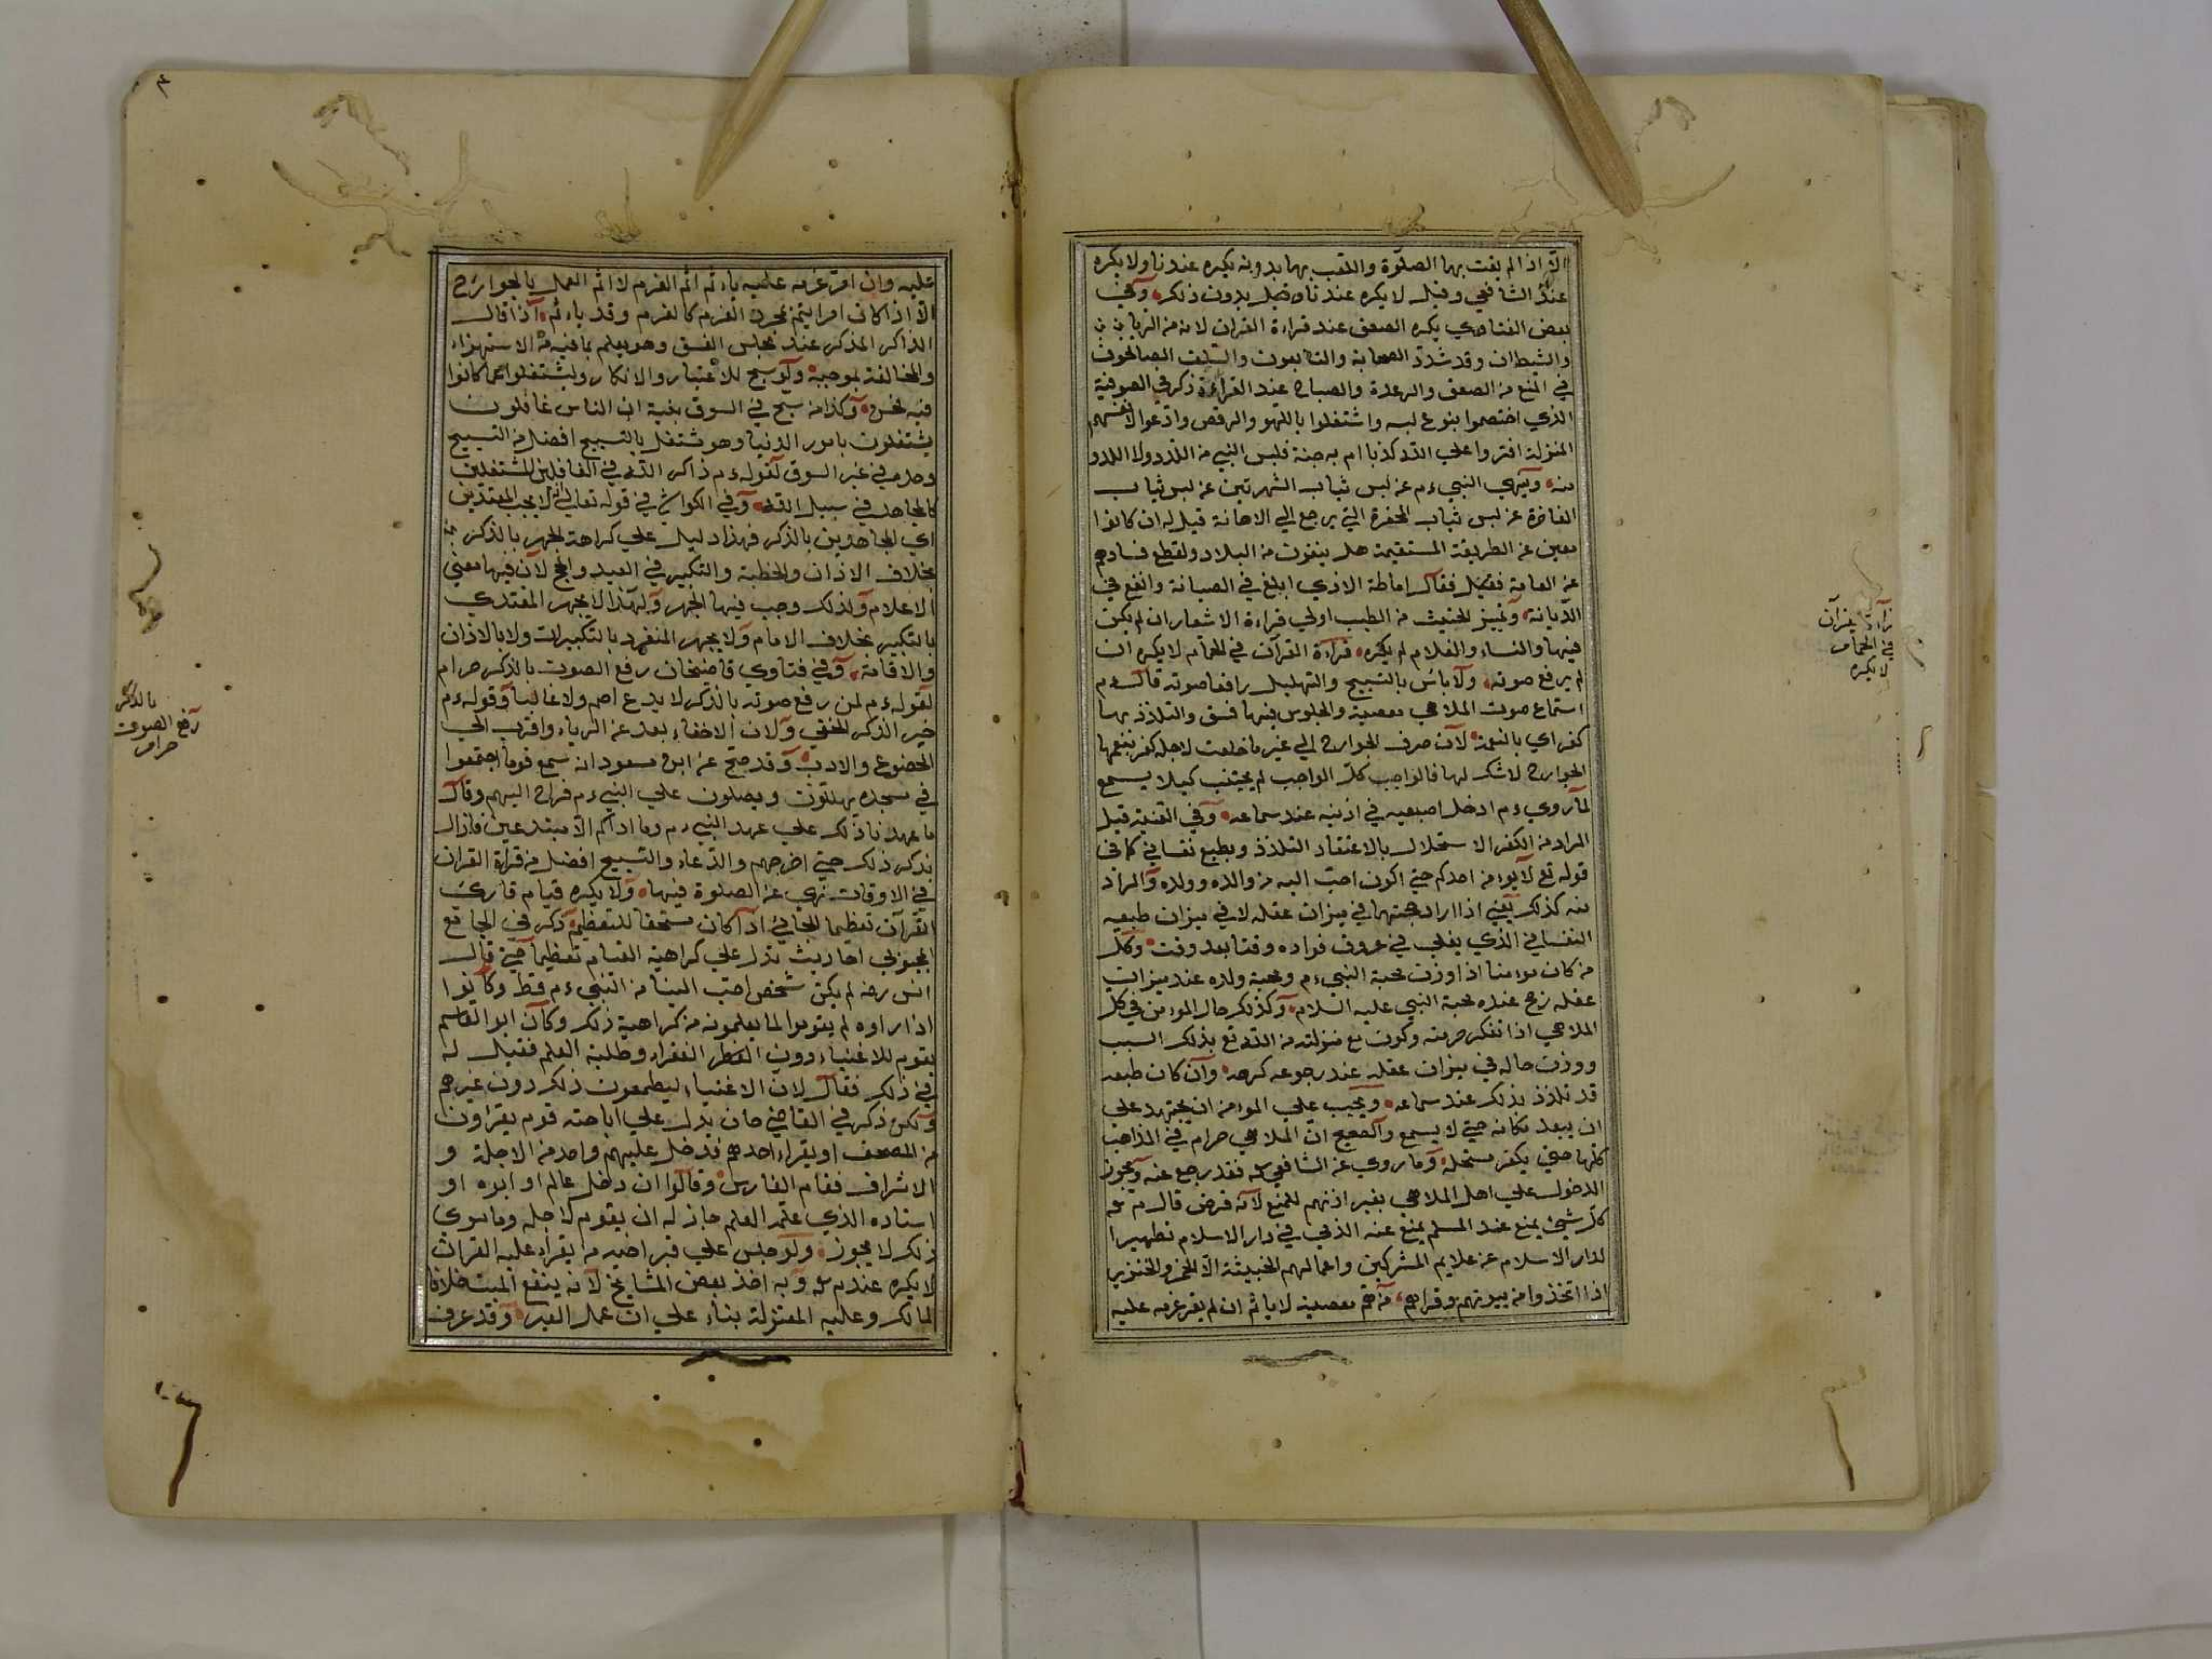 الا اذا لم يفت بها الصلوة واللعب بها بدونه يكره عندنا ولا يكره
عند الشافعي وقيل لا يكره عندنا وقيل بدون ذكر وفي
بعض الفتاوي يكره الصعق عند قراءة القران لانه من الريا
والشيطان وقد شدد الصحابة والتابعون والسلف الصالحون
في المنع من الصعق والرعدة والصياح عند القراءة ذكر في الصوفية
الذي اختصموا بنوع لبسه واشتغلوا باللهو والرقص وادعوا لانفسهم
المنزلة افتروا علي الله كذبا ام به جنة فليس النبي من اللدد ولا اللدد
منه ونهي النبي ءم عن لبس ثياب الشهرتين عن لبس ثياب
الفاخرة عن لبس ثياب الحقرة التي يرجع الي الاهانة قيل له ان كانوا
معين عن الطريقة المستقيمة هل ينفون من البلاد ولقطع فسادهم
عن العامة فقيل فقال اماطة الاذي ابلغ في الصيانة وانفع في
الديانة وتمييز الخبيث من الطيب اولي قراءة الاشعار ان لم يكن
فيها والنساء والغلام لم يكره قراءة القرآن في الحمام لا يكره ان
لم يرفع صوته ولا بأس بالتسبيح والتهليل رافعا صوته قال ءم
استماع صوت الملاهي معصية والجلوس فيها فسق والتلذذ بها
كفر اي بالنعمة لان صرف الجوارح الي غير ما خلقت لاجله كفر بنعمها
الجوارح لا شكر لها فالواجب كل الواجب لم يجتنب كيلا يسمع
لما روي ءم ادخل اصبعيه في اذنيه عند سماعه وفي القنية قيل
المراد من الكفر الاستحلال بالاعتقاد التلذذ وبطبع نفساني كما في
قوله تع لا يؤمن احدكم حتي اكون احب اليه من والده وولده والمراد
منه كذلك يعني اذا اراد محبتهما في ميزان عقله لا في ميزان طبعه
النفساني الذي يغلي في عروق فواده وقتا بعد وقت وكل
من كان مومنا اذا وزن محبة النبي ءم ومحبة ولده عند ميزان
عقله رجح عنده محبة النبي عليه السلام وكذلك حال المومن في كل
الملاهي اذا تفكر حرمته وكون مع منزلته من الله تع بذلك السبب
ووزن حاله في ميزان عقله عند رجوعه كرهه وان كان طبعه
قد تلذذ بذلك عند سماعه ويجب علي المومن ان يجتهد علي
ان يبعد مكانه حتي لا يسمع والصحيح ان الملاهي حرام في المذاهب
كلها حتي يكفر مستحله وما روي عن الشافعي فقد رجع عنه ويجوز
الدخول علي اهل الملاهي بغير اذنهم للمنع لانه فرض قال
كل شيئ يمنع عند المسلم يمنع عنه الذمي في دار الاسلام تطهيرا
لدار الاسلام عن علايم المشركين واعمالهم الخبيثة الا الخمر والخنزير
اذا اتخذوا من بيوتهم وقراهم من هم معصية لا ياثم ان لم يقر عزمه عليه
قراءة القرآن
في الحمام
لا يكره
٣
عليه وان اقر عزمه عليه ياءثم اثم العزم لا اثم العمل بالجوارح
الا اذا كان امرا يتم بمجرد العزم كالعزم وقد ياءثم اذا قال
الذاكر المذكر عند مجلس الفسق وهو يعلم بما فيه من الاستهزاء
والمخالفة بموجبه ولو سبح للاعتبار والانكار وليشتغلوا عما كانوا
فيه فحسن وكذا من سبح في السوق بنية ان الناس غافلون
يشتغلون بامور الدنيا وهو يشتغل بالتسبيح افضل من التسبيح
وحده في غير السوق لقوله ءم ذاكر الله في الغافلين المشتغلين
كالمجاهد في سبيل الله وفي الكواشي في قوله تعالي انه لا يحب المعتدين
اي المجاهدين بالذكر فهذا دليل علي كراهة الجهر بالذكر
بخلاف الاذان والخطبة والتكبير في العيد والحج لان فيها معني
الاعلام ولذلك وجب فيها الجهر ولهذا لا يجهر المقتدي
بالتكبير بخلاف الامام ولا يجهر المنفرد بالتكبيرات ولا بالاذان
والاقامة وفي فتاوي قاضيخان رفع الصوت بالذكر حرام
لقوله ءم لمن رفع صوته بالذكر لا يدع اصم ولا غائبا وقوله ءم
خير الذكر الخفي ولان الاخفاء بعد عن الرياء واقرب الي
الخضوع والادب وقد صح عن ابن مسعود انه سمع قوما اجتمعوا
في مسجده يهللون ويصلون علي النبي ءم فراح اليهم وقال
ما عهدنا ذلك علي عهد النبي ءم وما اراكم الا مبتدعين فما زال
يذكر ذلك حتي اخرجهم والدعاء والتسبيح افضل من قراءة القران
في الاوقات نهي عن الصلوة فيها ولا يكره قيام قاري
القرآن تعظيما للجائي اذا كان مستحقا للتعظيم ذكر في الجامع
المحبوبي احاديث تدل علي كراهية القيام تعظيما حتي قال
انس رضه لم يكن شخص احب الينا من النبي ءم قط وكانوا
اذا راوه لم يقوموا لما يعلمونه من كراهية ذلك وكان ابو القاسم
يقوم للاغنياء دون الفقراء وطلبة العلم فقيل له
في ذلك فقال لان الاغنياء ليطمعون ذلك دون غيرهم
ولكن ذكر في القاضي خان يدل علي اباحته قوم يقراون
من المصحف او يقراء احدهم فدخل عليهم واحد من الاجلة و
الاشراف فقام القارس وقالوا ان دخل عالم او ابوه او
استاده الذي علمه العلم جاز له ان يقوم لاجله وما سوي
ذلك لا يجوز ولو جلس علي قبر اخيه من يقراء عليه القران
لا يكره عند م وبه اخذ بعض المشايخ لانه ينفع الميت خلافا
لمالك وعليه المعتزلة بناء علي ان عمل الغير وقد عرف
بالذكر
رفع الصوت
حرام